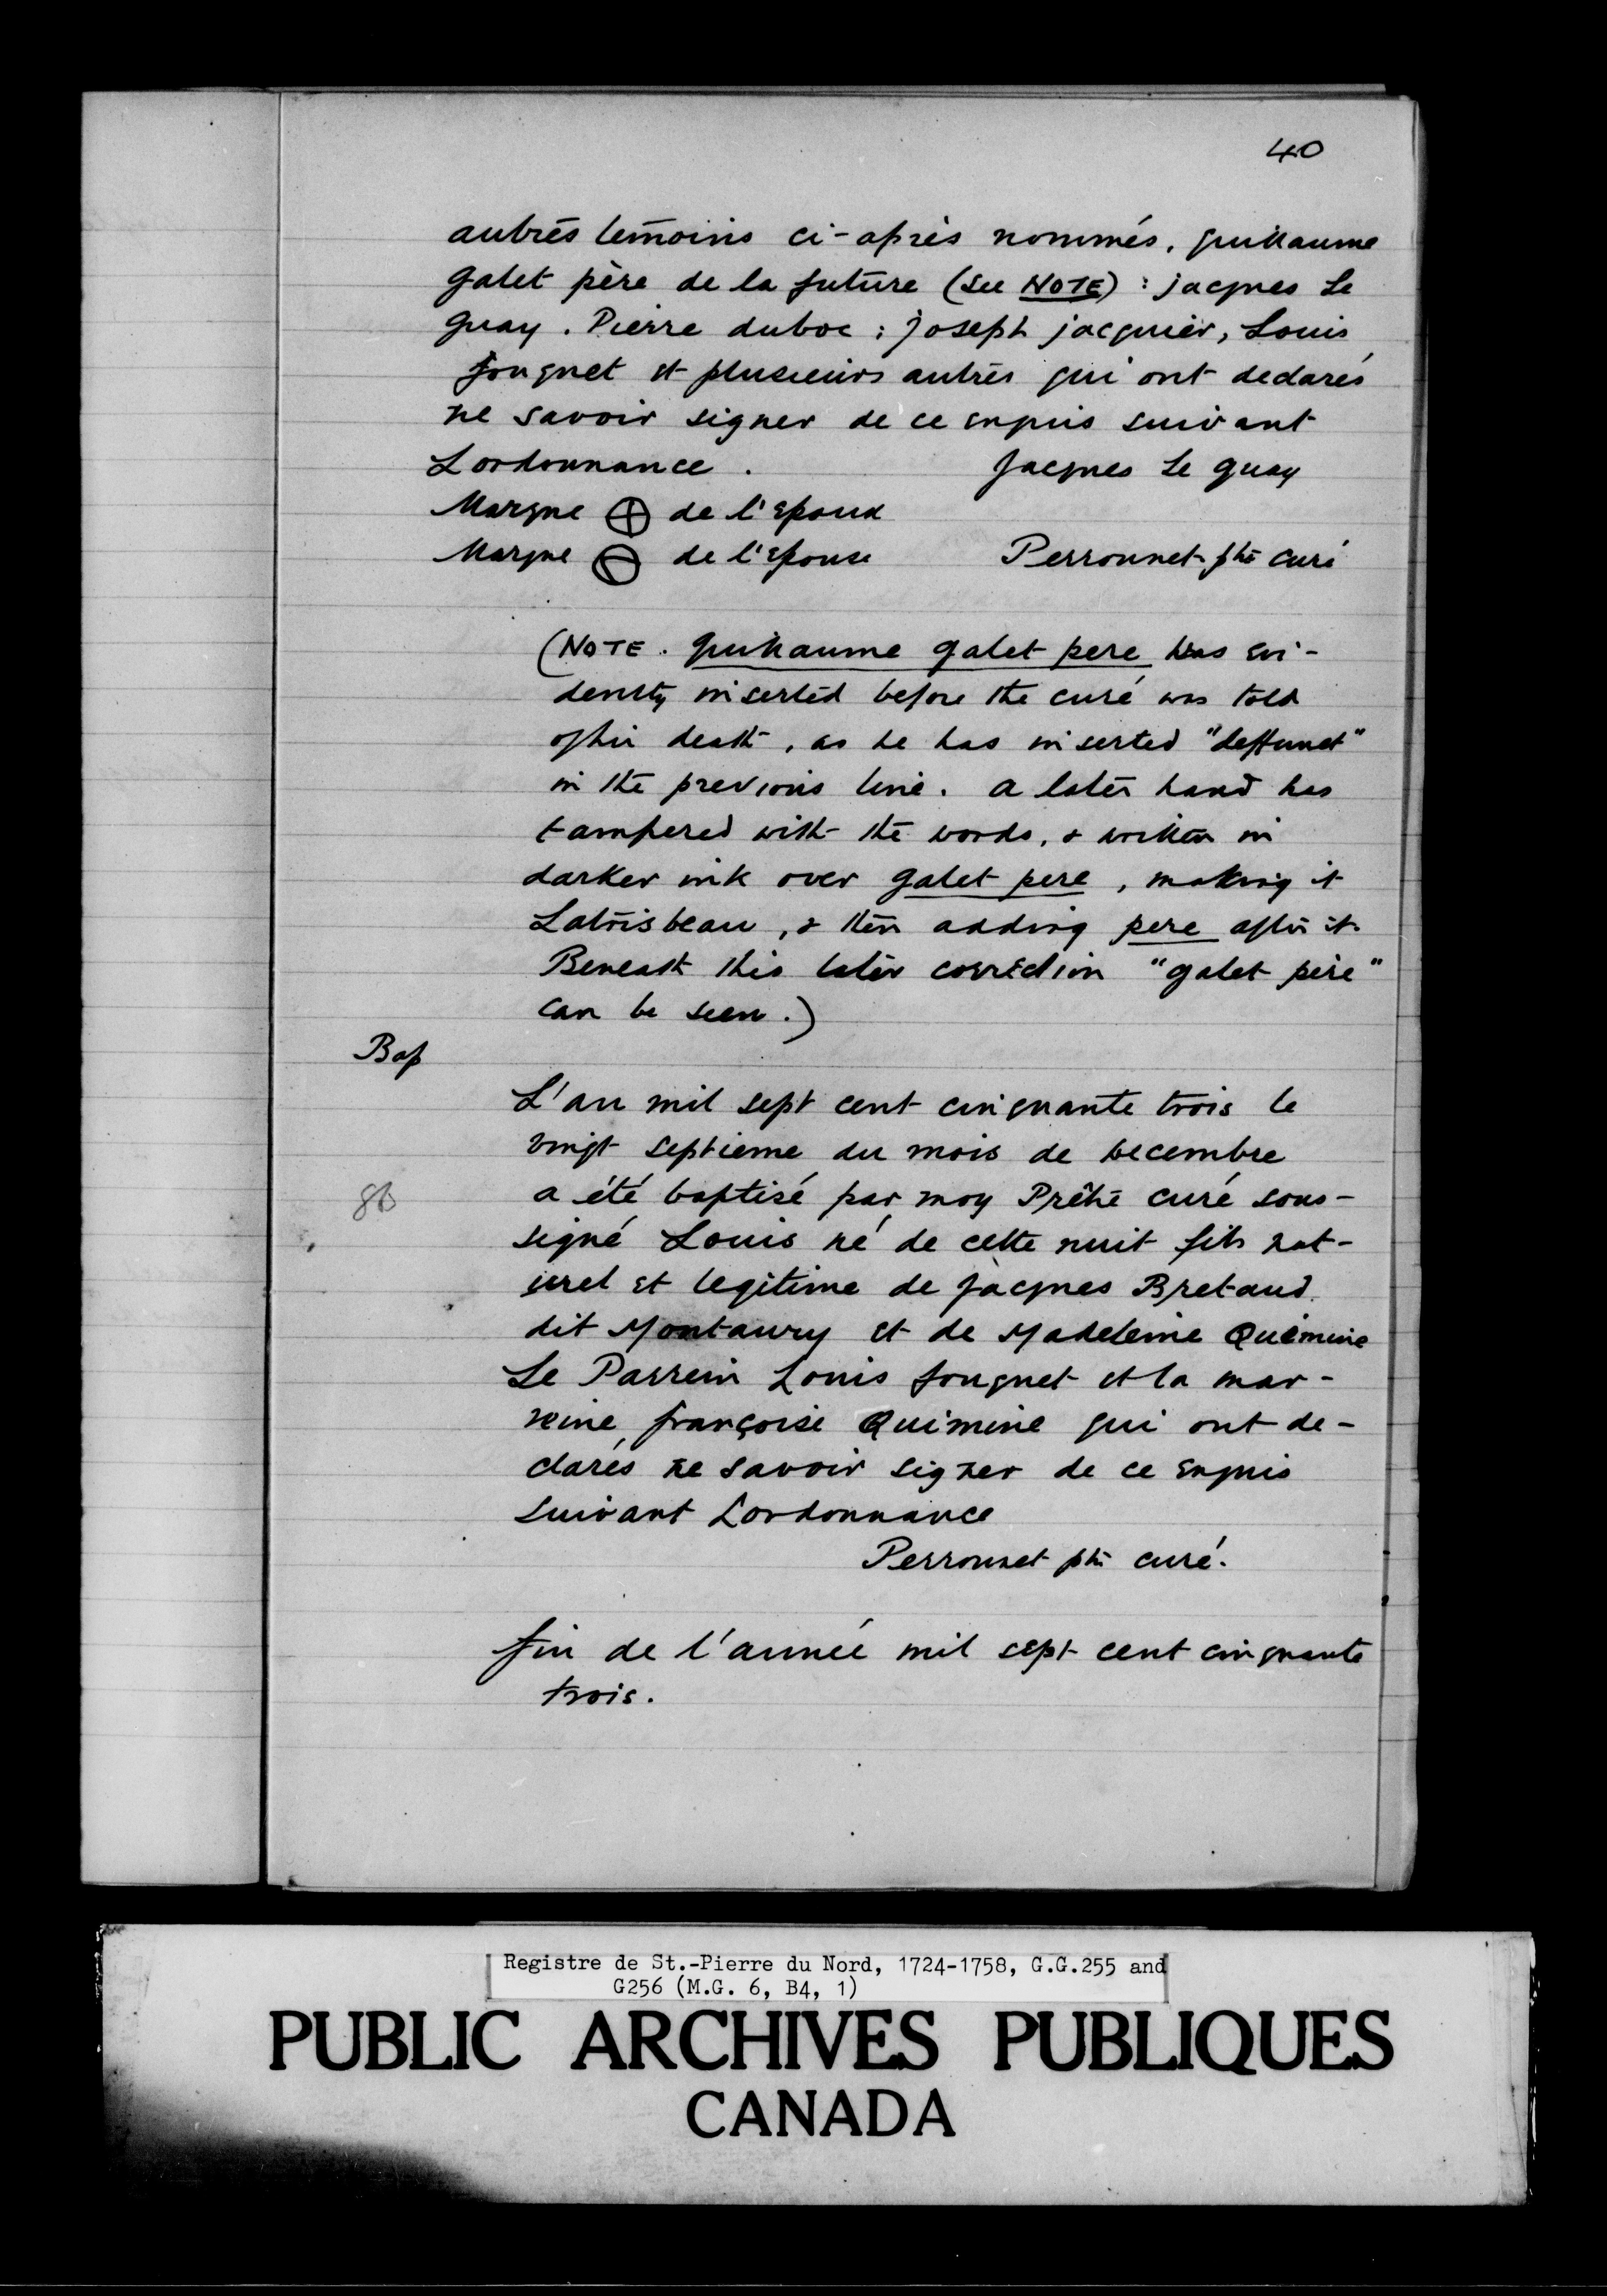 40
autres temoins ci-après nommés, guillaume
galet père de la future (see NOTE) : jacques Le
guay. Pierre duboc ; joseph jacquier, Louis
fouquet et plusieurs autres qui ont declarés
ne savoir signer de ce enquis suivant
Lordonnance. Jacques Le guay
Marque ⊕ de l'epoux
Marque ⊖ de l'epouse Perronnet ptre curé
(NOTE. guillaume galet pere was evi-
dently inserted before the curé was told
of his death, as he has inserted "deffunct"
in the previous line. A later hand has
tampered with the words, & written in
darker ink over galet pere, making it
Latoisbeau, & then adding pere after it.
Beneath this later correction "galet père"
can be seen.)
Bap
L'an mil sept cent cinquante trois le
vingt septieme du mois de Decembre
86
a été baptisé par moy Prêtre curé sous-
signé Louis né de cette nuit fils nat-
urel et legitime de jacques Bretaud
dit Montaury et de Madeleine Quémine
Le Parrein Louis fouquet et la mar-
reine françoise Quimine qui ont de-
clarés ne savoir signer de ce enquis
suivant Lordonnance
Perronnet ptre curé.
fin de l'année mil sept cent cinquante
trois.
Registre de St.-Pierre du Nord, 1724-1758, G.G.255 and
G256 (M.G. 6, B4, 1)
PUBLIC ARCHIVES PUBLIQUES
CANADA